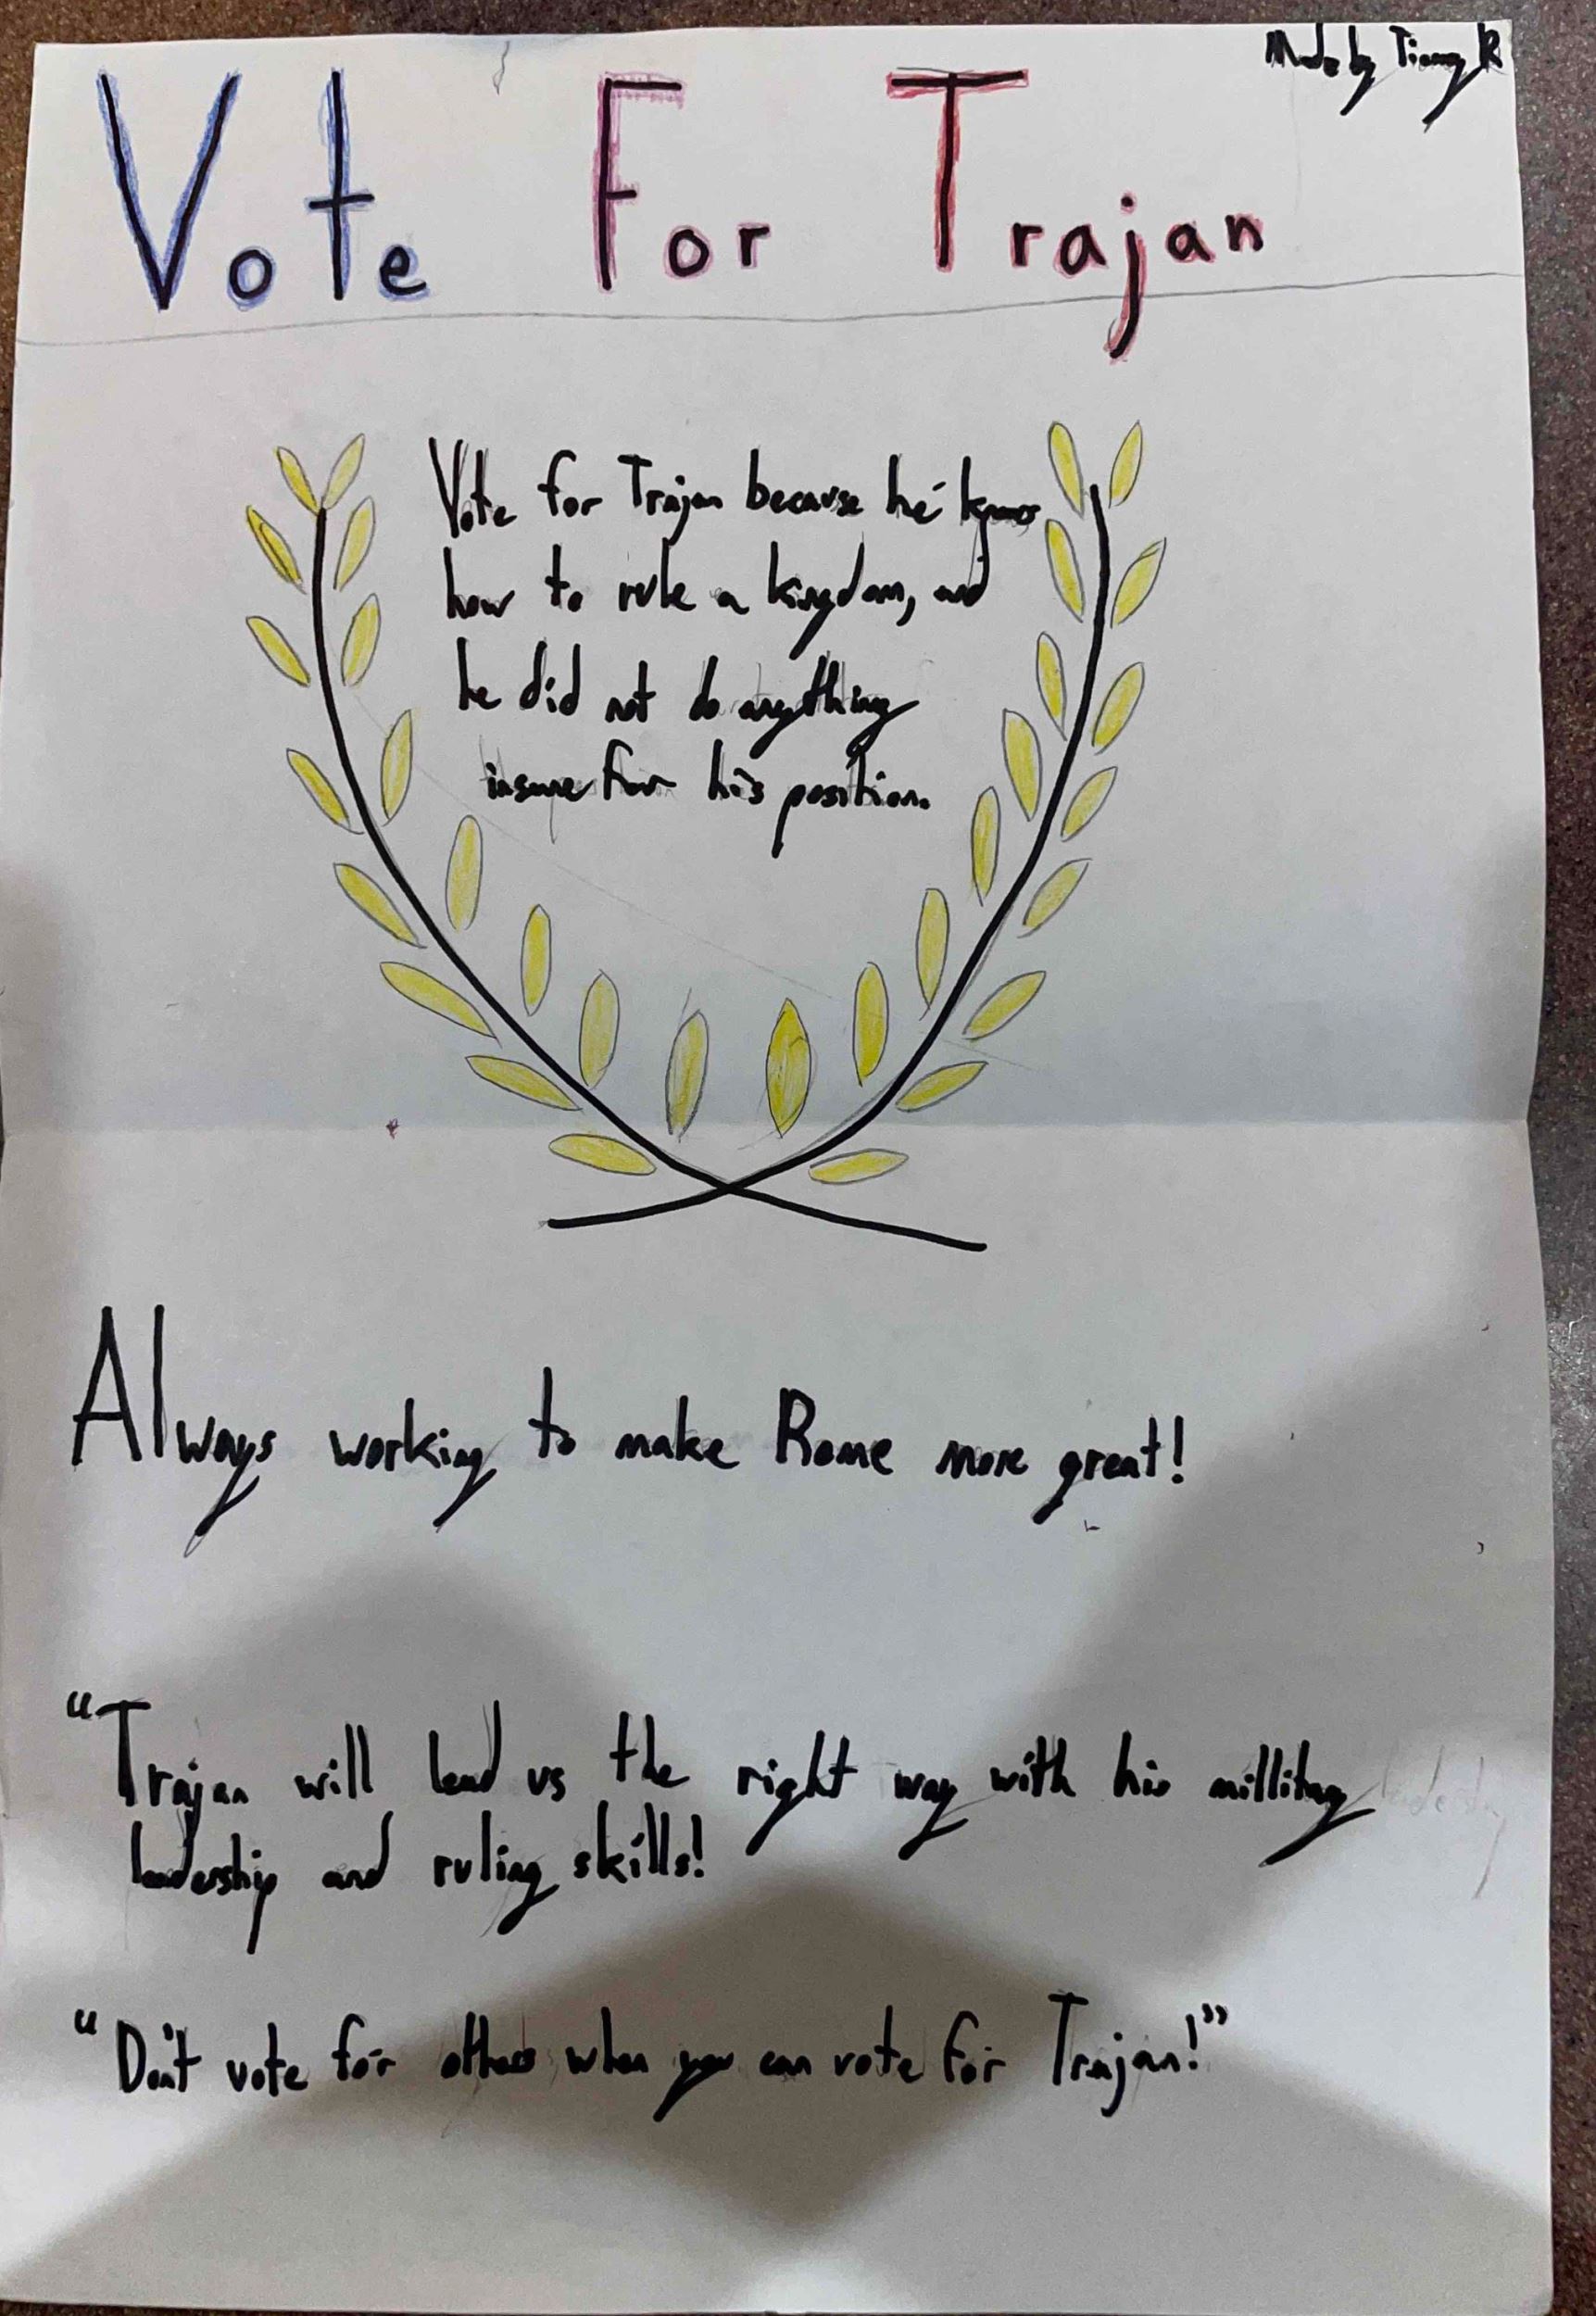 Made by R
Vote For Trajan
Vote for Trajan because he knows
how to rule a kingdom, and
he did not do anything
insane for his position.
Always working to make Rome more great!
“Trajan will lead us the right way with his millitary
leadership and ruling skills!
“Don't vote for others when you can vote for Trajan!”